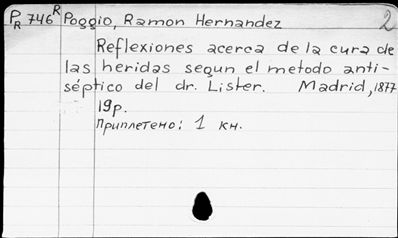 PR 746 R Poggio, Ramon Hernandez 2
Reflexiones acerca de la cura de
las heridas segun el metodo anti-
séptico del dr. Lister. Madrid, 1877
19p.
Приплетено: 1 кн.